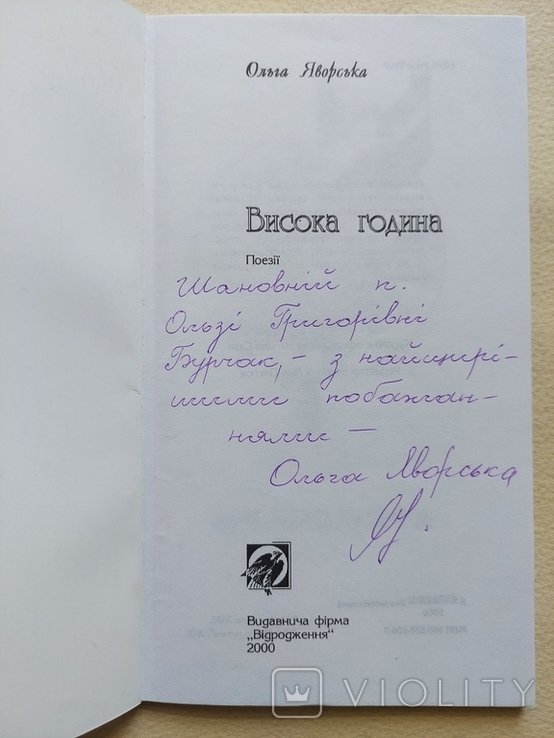 Ольга Яворська
Висока година
Поезії
Шановній п.
Ользі Григорівні
Бурчак, – з найщирі-
шими побажан-
нями –
Ольга Яворська
Видавнича фірма
„Відродження"
2000
VIOLITY